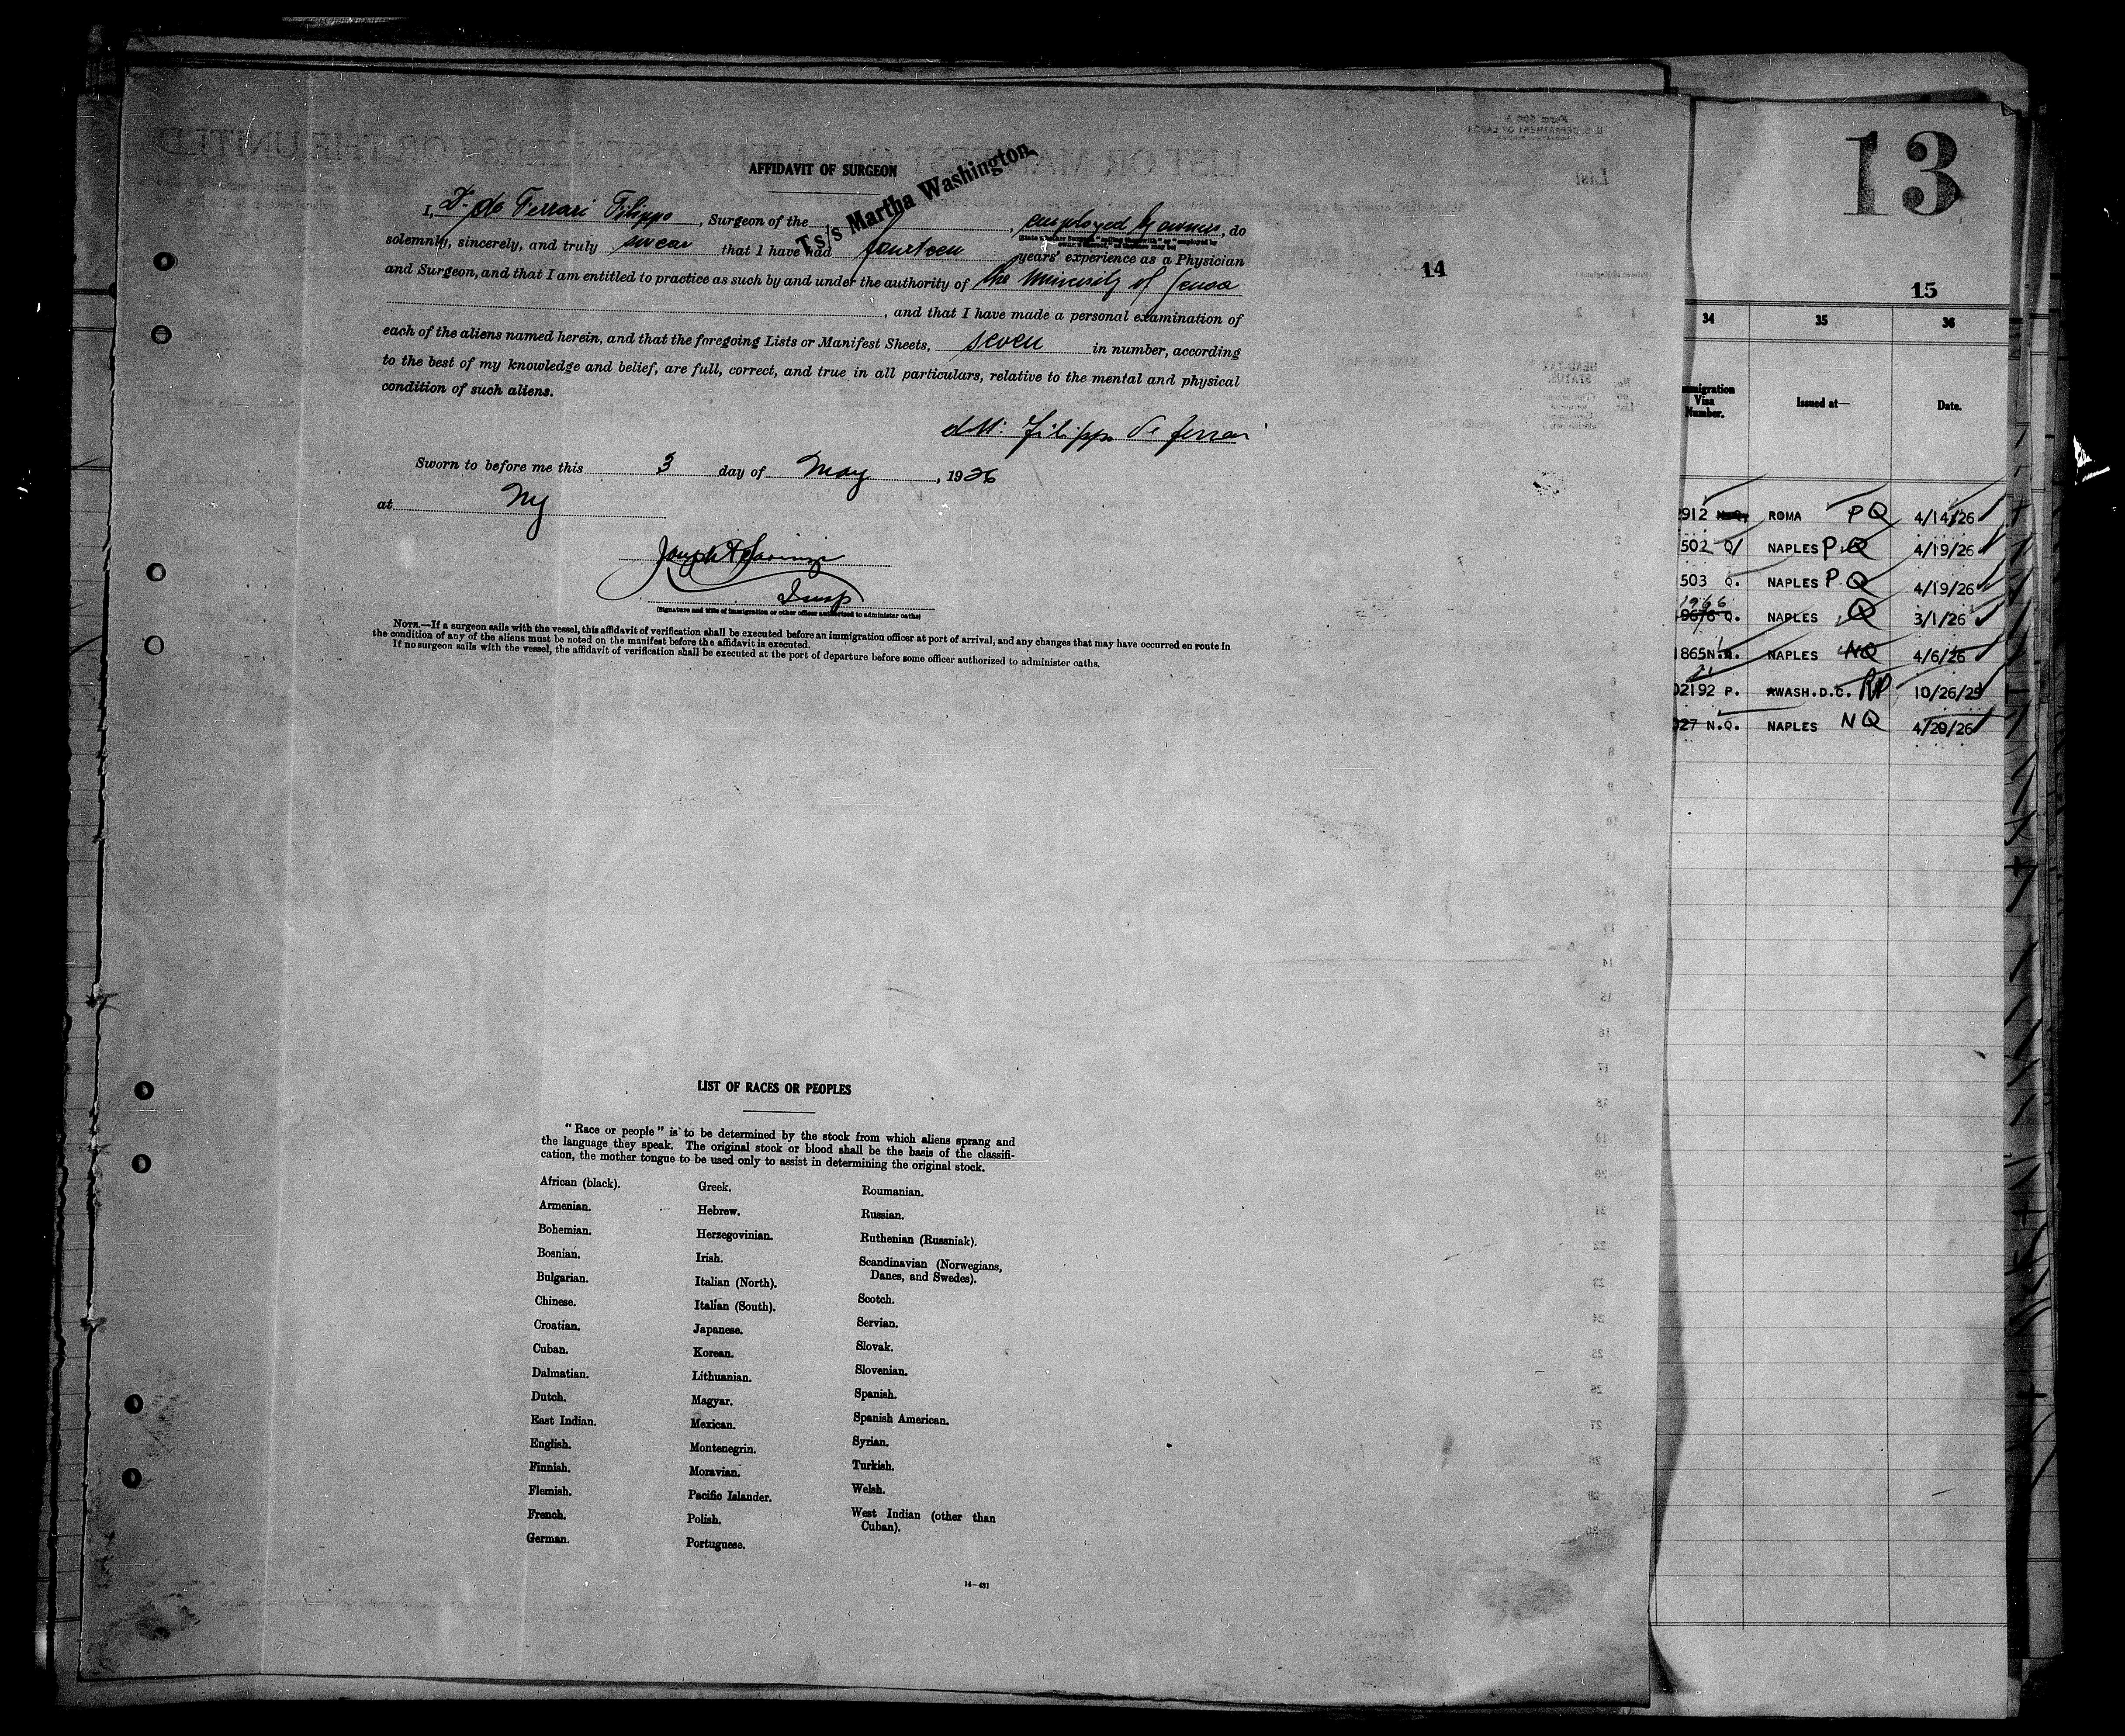 AFFIDAVIT OF SURGEON
T s/s Martha Washington
I, Dr. de Ferrari Filippo, Surgeon of the , employed by owners, do
(State whether Surgeon "sailing therewith" or "employed by owners thereof," as the case may be)
solemnly, sincerely, and truly swear that I have had fourteen years' experience as a Physician
and Surgeon, and that I am entitled to practice as such by and under the authority of the University of Genoa
, and that I have made a personal examination of
each of the aliens named herein, and that the foregoing Lists or Manifest Sheets, seven in number, according
to the best of my knowledge and belief, are full, correct, and true in all particulars, relative to the mental and physical
condition of such aliens.
Filippo De Ferrari
Sworn to before me this 3 day of May, 1926
at NY
Joseph
Insp
(Signature and title of immigration or other officer authorized to administer oaths)
NOTE.—If a surgeon sails with the vessel, this affidavit of verification shall be executed before an immigration officer at port of arrival, and any changes that may have occurred en route in
the condition of any of the aliens must be noted on the manifest before the affidavit is executed.
If no surgeon sails with the vessel, the affidavit of verification shall be executed at the port of departure before some officer authorized to administer oaths.
LIST OF RACES OR PEOPLES
"Race or people" is to be determined by the stock from which aliens sprang and
the language they speak. The original stock or blood shall be the basis of the classifi-
cation, the mother tongue to be used only to assist in determining the original stock.
African (black).
Armenian.
Bohemian.
Bosnian.
Bulgarian.
Chinese.
Croatian.
Cuban.
Dalmatian.
Dutch.
East Indian.
English.
Finnish.
Flemish.
French.
German.
Greek.
Hebrew.
Herzegovinian.
Irish.
Italian (North).
Italian (South).
Japanese.
Korean.
Lithuanian.
Magyar.
Mexican.
Montenegrin.
Moravian.
Pacific Islander.
Polish.
Portuguese.
Roumanian.
Russian.
Ruthenian (Russniak).
Scandinavian (Norwegians,
Danes, and Swedes).
Scotch.
Servian.
Slovak.
Slovenian.
Spanish.
Spanish American.
Syrian.
Turkish.
Welsh.
West Indian (other than
Cuban).
14—431
14
13
15
34 35 36
Immigration
Visa
Number.
Issued at—
Date.
912 ROMA PQ 4/14/26
502 Q NAPLES P.Q 4/19/26
503 Q. NAPLES P.Q 4/19/26
1966
Q. NAPLES Q 3/1/26
1865 N. NAPLES NQ 4/6/26
02192 P. WASH.D.C. RP 10/26/25
027 N.Q. NAPLES NQ 4/20/26